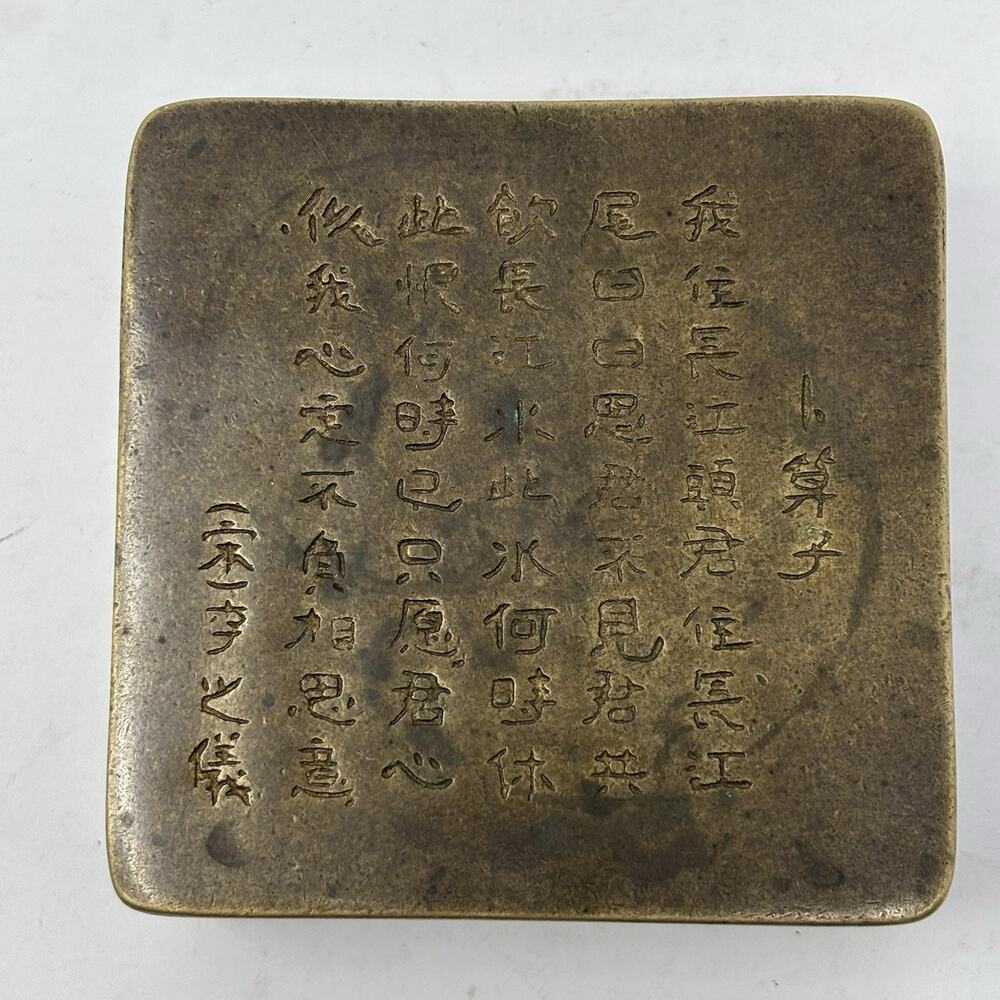 卜算子
我住長江頭君住長江
尾日日思君不見君共
飲長江水此水何時休
此恨何時已只愿君心
似我心定不負相思意
(宋)李之儀